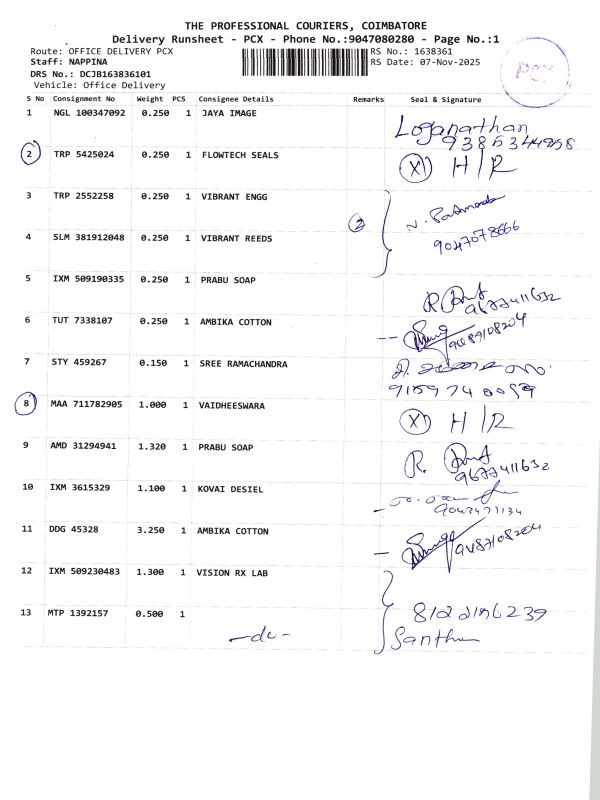 THE PROFESSIONAL COURIERS, COIMBATORE
Delivery Runsheet - PCX - Phone No.:9047080280 - Page No.:1
Route: OFFICE DELIVERY PCX RS No.: 1638361
Staff: NAPPINA RS Date: 07-Nov-2025
DRS No.: DCJB163836101
Vehicle: Office Delivery
PCX
S No Consignment No Weight PCS Consignee Details Remarks Seal & Signature
1 NGL 100347092 0.250 1 JAYA IMAGE Loganathan
2 TRP 5425024 0.250 1 FLOWTECH SEALS X H/R
3 TRP 2552258 0.250 1 VIBRANT ENGG
2
4 SLM 381912048 0.250 1 VIBRANT REEDS 9047078666
5 IXM 509190335 0.250 1 PRABU SOAP
9677411632
6 TUT 7338107 0.250 1 AMBIKA COTTON
7 STY 459267 0.150 1 SREE RAMACHANDRA
9159740059
8 MAA 711782905 1.000 1 VAIDHEESWARA X H/R
9 AMD 31294941 1.320 1 PRABU SOAP R.
9677411632
10 IXM 3615329 1.100 1 KOVAI DESIEL
11 DDG 45328 3.250 1 AMBIKA COTTON
12 IXM 509230483 1.300 1 VISION RX LAB
13 MTP 1392157 0.500 1
-do-